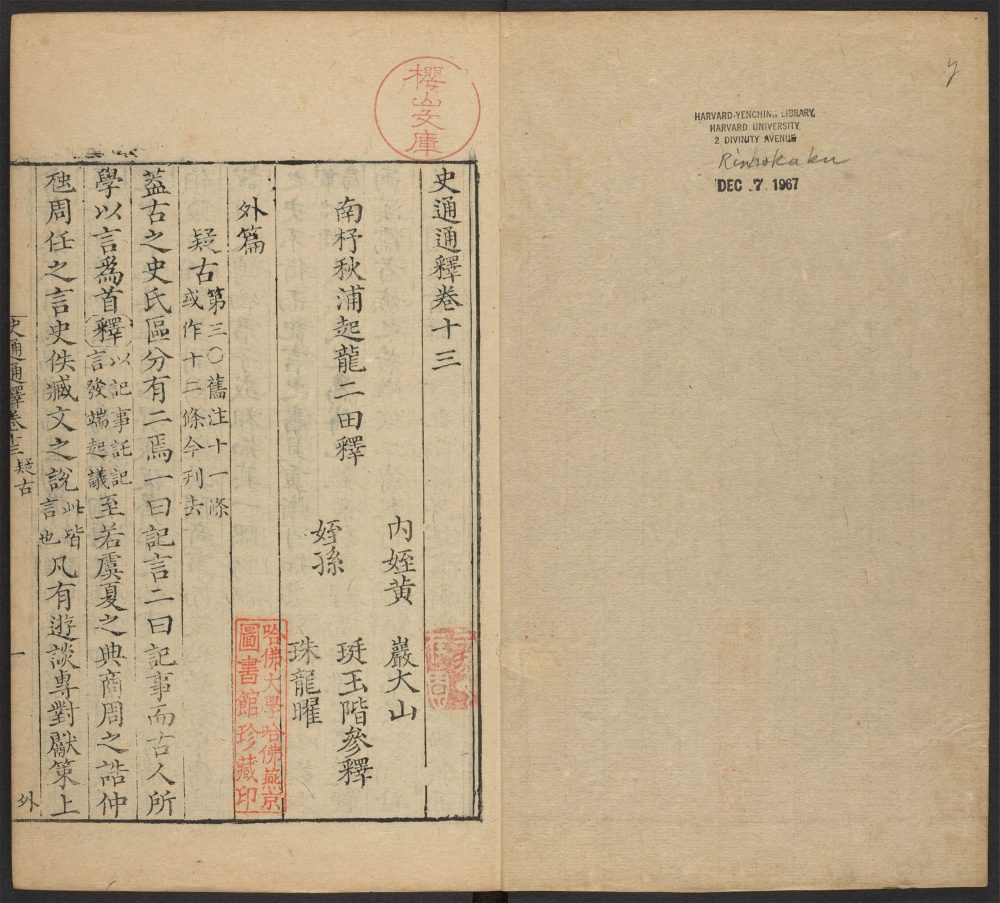 HARVARD-YENCHING LIBRARY,
HARVARD UNIVERSITY
2 DIVINITY AVENUE
Rinrokaku
DEC 7 1967
櫻山文庫
史通通釋卷十三
南杼秋浦起龍二田釋
内姪黄 巖大山
姪孫 珽玉階參釋
珠龍曜
外篇
疑古 第三○舊注十一條或作十二條今刊去
葢古之史氏區分有二焉一曰記言二曰記事而古人所
學以言爲首釋以記事託記言發端起議至若虞夏之典商周之誥仲
虺周任之言史佚臧文之說此皆言也凡有遊談專對獻策上
史通通釋卷十三 疑古 一 外
哈佛大學哈佛燕京
圖書館珍藏印